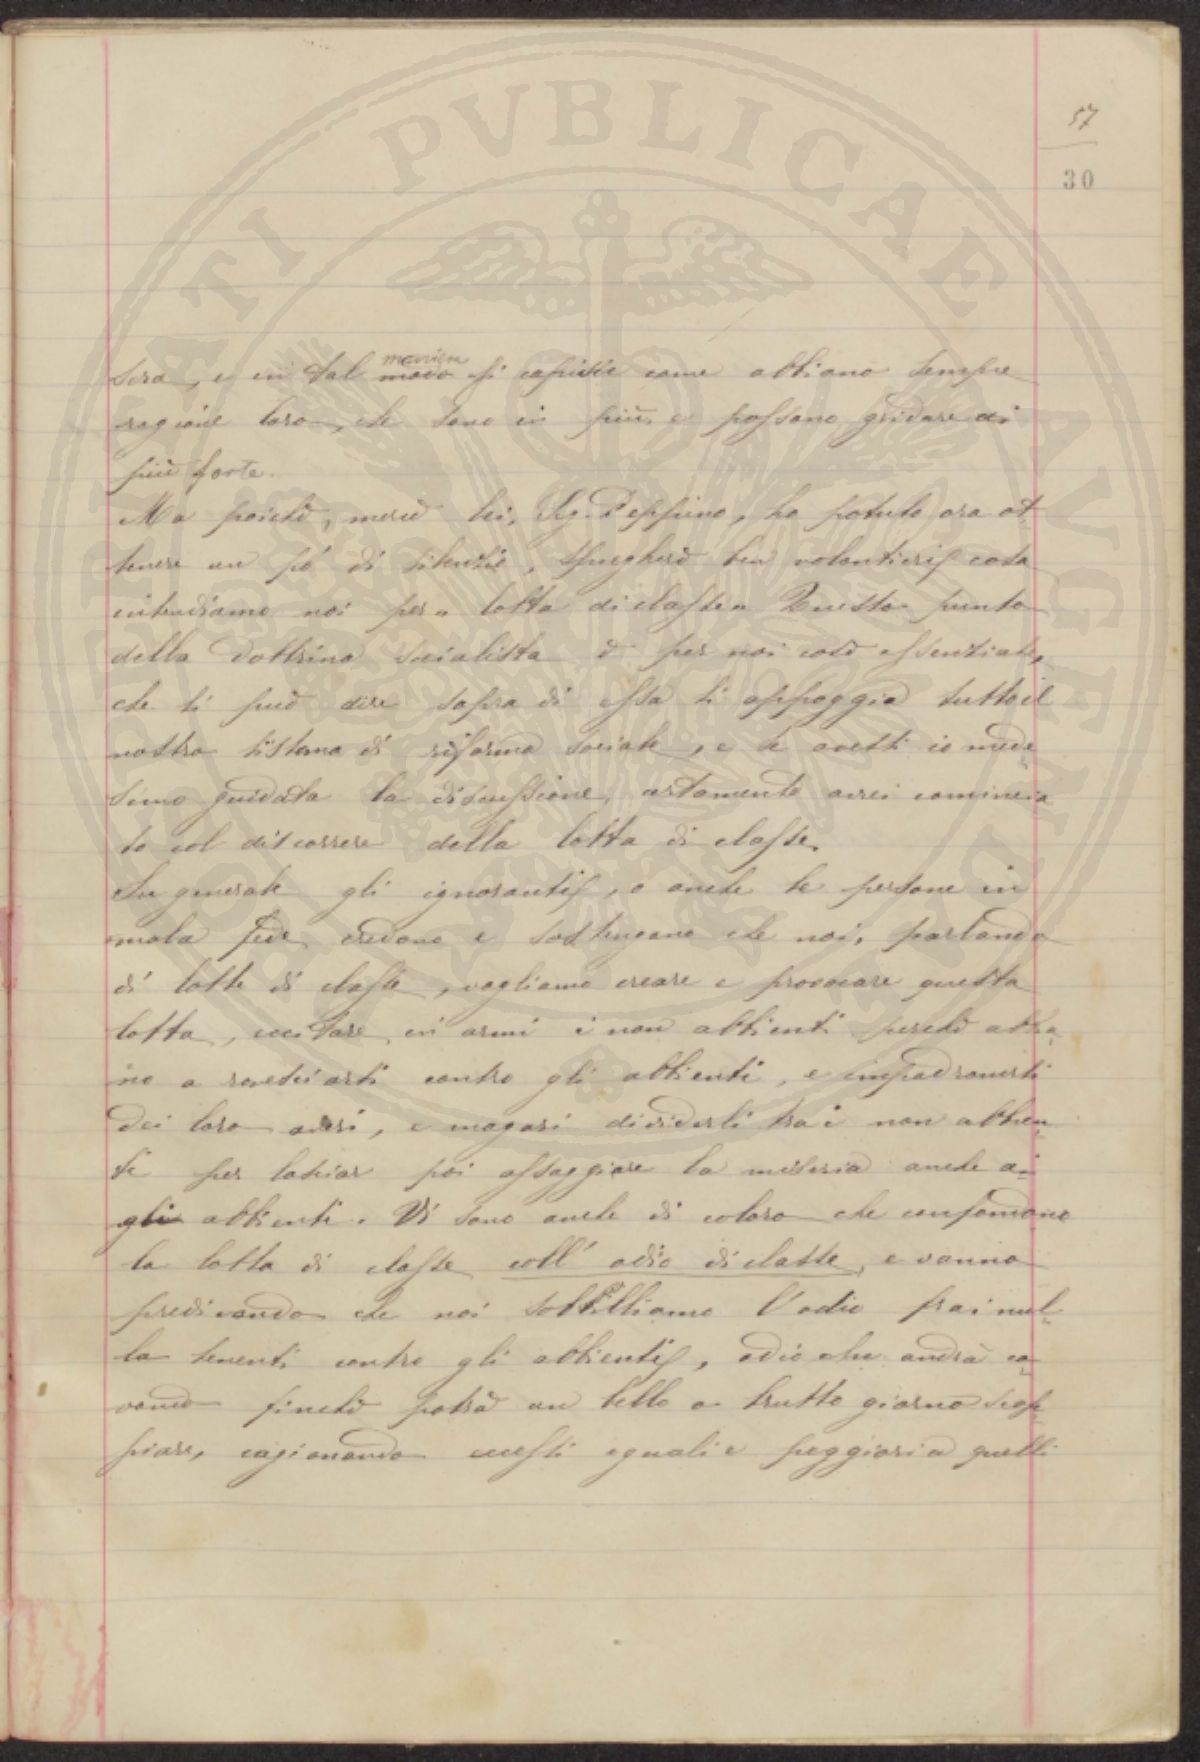 57
30
maniera
sera, e in tal modo si capisce come abbiano sempre
ragione loro, che sono in più e possono gridare
più forte.
Ma poichè, mercè lei, Sig. Peppino, ho potuto ora ot
tenere un pò di silenzio, spiegherò ben volontieri cosa
intendiamo noi per " lotta di classe " Questo punto
della dottrina socialista è per noi così essenziale,
che si può dire sopra di essa si appoggia tutto il
nostro sistema di riforma sociale, e se avessi io mede
simo guidata la discussione, certamente avrei comincia
to col discorrere della lotta di classe.
In generale gli ignoranti, o anche le persone in
mala fede, credono e sostengono che noi, parlando
di lotte di classe, vogliamo creare e provocare questa
lotta, eccitare in armi i non abbienti perchè
no a rovesciarsi contro gli abbienti, e impadronirsi
dei loro averi, e magari dividerli tra i non abbien-
ti per lasciar poi assaggiare la miseria anche a-
gli abbienti. Vi sono anche di coloro che confondono
la lotta di classe coll' odio di classe, e vanno
predicando che noi sobbilliamo l'odio fra i nul-
la tenenti contro gli abbienti, odio che andrà co-
vando finchè potrà un bello o brutto giorno scop-
piare, cagionando eccessi eguali e peggiori a quelli
PVBLICAE